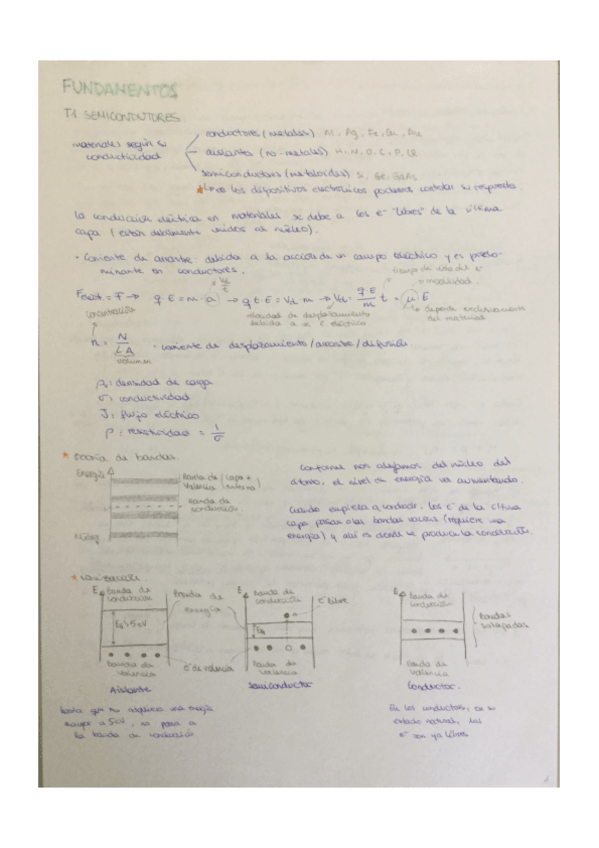 FUNDAMENTOS
T.1 SEMICONDUTORES
materiales según su conductividad
conductores (metales) Al, Ag, Fe, Cu, Au
aislantes (no-metales) H, N, O, C, P, Cl
semiconductores (metaloides) Si, Ge, GaAs
los dispositivos electrónicos podemos controlar su respuesta
La conducción eléctrica en materiales se debe a los e⁻ "libres" de la última
capa (están débilmente unidos al núcleo).
· Corriente de arrastre: debida a la acción de un campo eléctrico y es predo-
minante en conductores.
tiempo de vida del e⁻
movilidad
= F → q·E = m·a → q t E = Vd m → Vd = q·E/m t = μ E
velocidad de desplazamiento
debida a un E eléctrico
depende exclusivamente
del material
concentración
n = N / L A
volumen
· corriente de desplazamiento/arrastre/difusión
ρ: densidad de carga
σ: conductividad
J: flujo eléctrico
ρ: resistividad = 1/σ
* Teoría de bandas
Energía
Banda de Valencia (capa + interna)
Banda de conducción
Núcleo
Conforme nos alejamos del núcleo del
átomo, el nivel de energía va aumentando.
Cuando empieza a conducir, los e⁻ de la última
capa pasan a las bandas vacías (requiere una
energía) y así es donde se produce la conducción.
* Ionización
E Banda de conducción
Eg > 5 eV
Banda de Valencia
Aislante
Banda de energía
e⁻ de valencia
E Banda de conducción
e⁻ libre
Eg
Banda de Valencia
Semiconductor
E Banda de conducción
Bandas solapadas
Banda de Valencia
Conductor
hasta que no adquiere una energía
mayor a 5 eV, no pasa a
la banda de conducción
En los conductores, en su
estado normal, los
e⁻ son ya libres